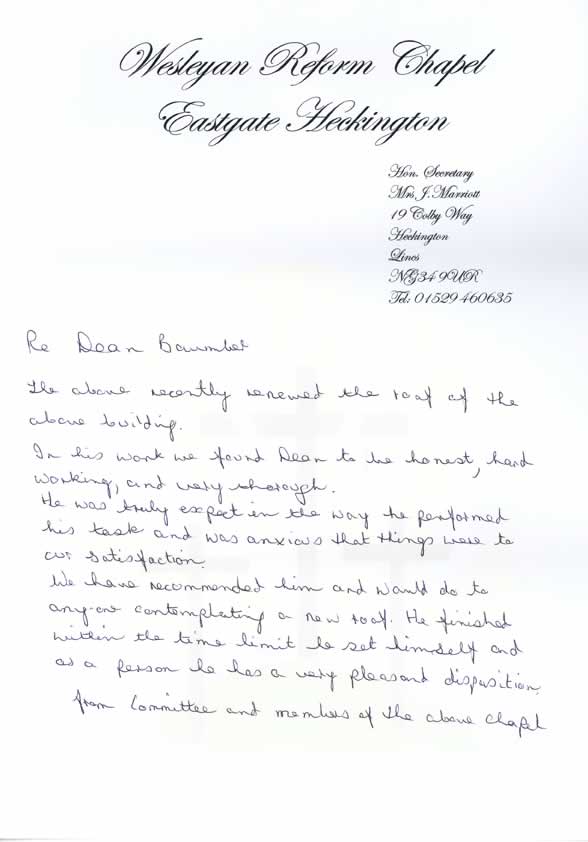 Wesleyan Reform Chapel
Eastgate Heckington
Hon. Secretary
Mrs J. Marriott
19 Colby Way
Heckington
Lincs
NG34 9UR
Tel: 01529 460635
Re Dean Baumber
The above recently renewed the roof of the
above building.
In his work we found Dean to be honest, hard
working, and very thorough.
He was truly expert in the way he performed
his task and was anxious that things were to
our satisfaction.
We have recommended him and would do to
any-one contemplating a new roof. He finished
within the time limit he set himself and
as a person he has a very pleasant disposition.
from Committee and members of the above Chapel